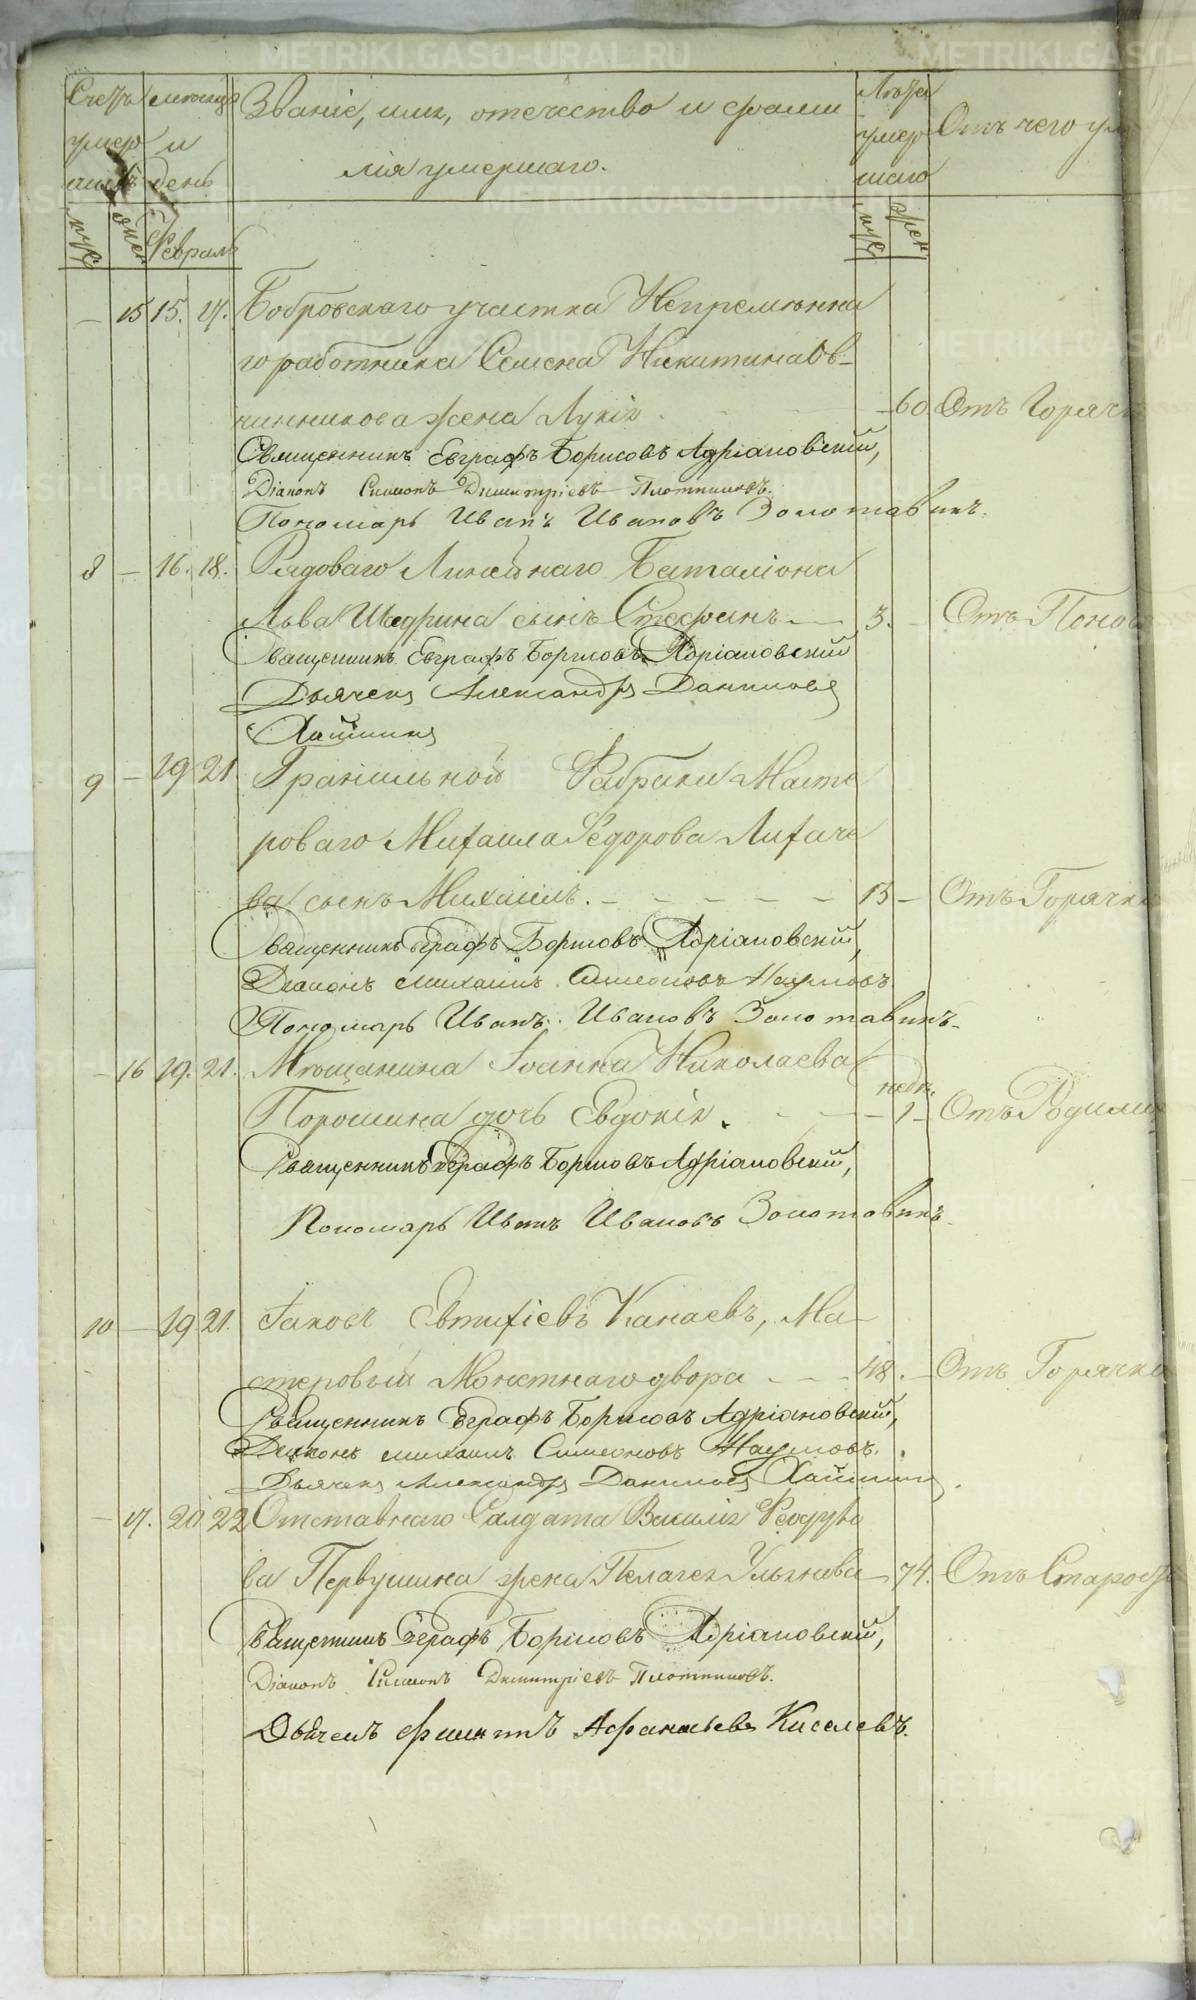 Счетъ умершихъ
муж. жен.
Месяцъ и день
Февраль
Званіе, имя, отечество и фамилія умершаго.
Лѣта умершаго
муж. жен.
Отъ чего ум
— 15 15. 17. Бобровскаго участка Непремѣнна
го работника Семена Никитина Ов-
чинникова жена Лукія - 60. Отъ Горячк
Священникъ Евграфъ Борисовъ Адріановскій,
Діаконъ Симеонъ Димитріевъ Плотниковъ.
Пономарь Иванъ Ивановъ Золотавинъ.
8 — 16. 18. Рядоваго Линейнаго Баталіона
Льва Щедрина сынъ Стефанъ — 3. - Отъ Поноса
Священникъ Евграфъ Борисовъ Адріановскій
Дьячекъ Александръ Даниловъ
9 — 19 21. Гранильной Фабрики Масте
роваго Михаила Ѳедорова Лихаче
ва сынъ Михаилъ. - - - - - 13 - Отъ Горячки
Священникъ Евграфъ Борисовъ Адріановскій,
Діаконъ Михаилъ Симеоновъ Наумовъ
Пономарь Иванъ Ивановъ Золотавинъ.
— 16 19. 21. Мѣщанина Іоанна Николаева
Порошина дочь Евдокія. - - - недѣ. 1 - Отъ Родимц
Священникъ Евграфъ Борисовъ Адріановскій,
Пономарь Иванъ Ивановъ Золотовинъ.
10 — 19 21. Іаковъ Евтихіевъ Канаевъ, Ма-
стеровый Монетнаго двора - - - 48. - Отъ Горячки
Священникъ Евграфъ Борисовъ Адріановскій,
Діаконъ Михаилъ Симеоновъ Наумовъ.
Дьячекъ Александръ Даниловъ
— 17. 20 22 Отставнаго Салдата Василія
ва Первушина жена Пелагея Ульянова - 74. Отъ Старос
Священникъ Евграфъ Борисовъ Адріановскій,
Діаконъ Симеонъ Димитріевъ Плотниковъ.
Дьячекъ Афанасьевъ Киселевъ.
METRIKI.GASO-URAL.RU